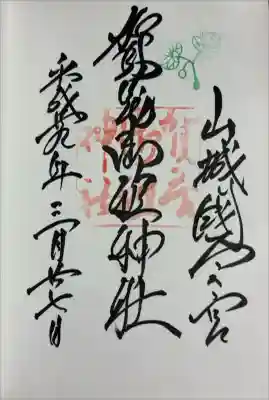 山城國一之宮
賀茂御祖神社
平成廿九年 三月廿七日